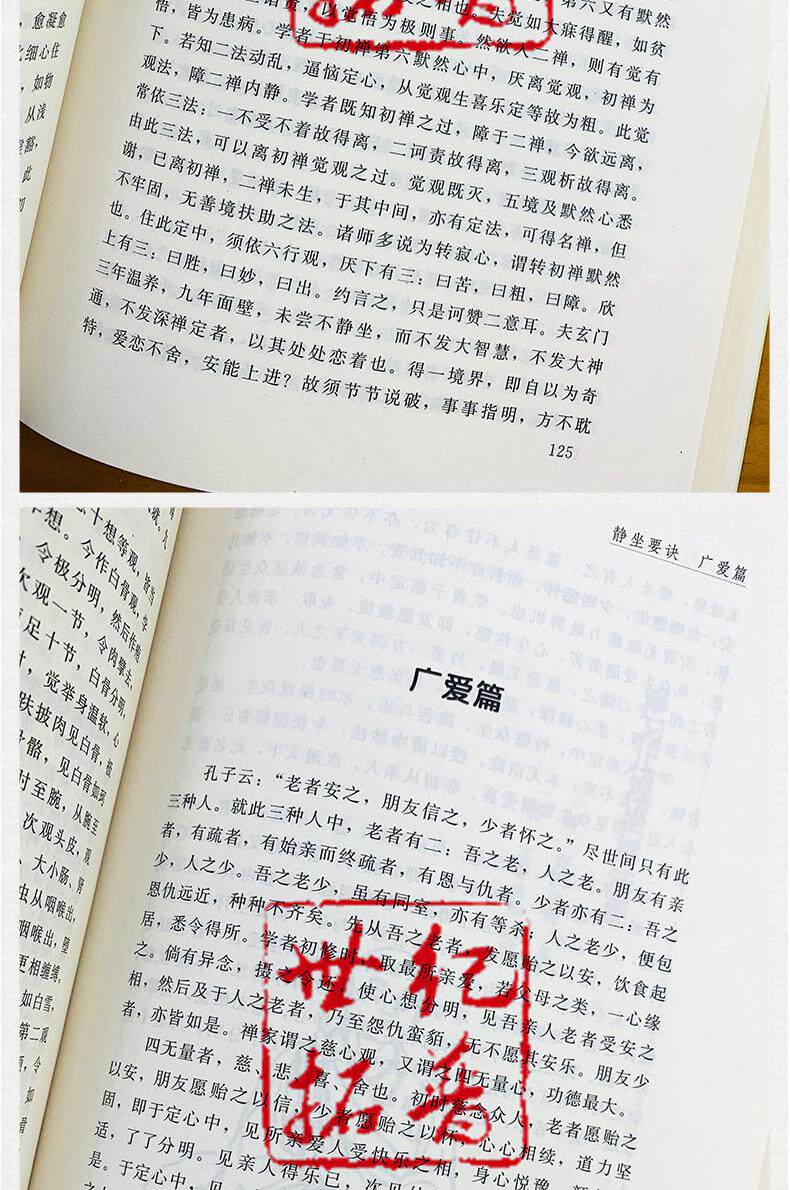 愈凝愈
细心住
，如物
从浅
豁，
此
又有默然
诃责，以觉悟为极则事。夫觉如大寐得醒，如贫
悟，皆为患病。学者于初禅第六默然心中，厌离觉观，初禅为
然欲入二禅，则有觉有
下。若知二法动乱，逼恼定心，从觉观生喜乐定等故为粗。此觉
观法，障二禅内静。学者既知初禅之过，障于二禅，今欲远离，
常依三法：一不受不着故得离，二诃责故得离，三观析故得离。
由此三法，可以离初禅觉观之过。觉观既灭，五境及默然心悉
谢，已离初禅，二禅未生，于其中间，亦有定法，可得名禅，但
不牢固，无善境扶助之法。诸师多说为转寂心，谓转初禅默然
也。住此定中，须依六行观，厌下有三：曰苦，曰粗，曰障。欣
上有三：曰胜，曰妙，曰出。约言之，只是诃赞二意耳。夫玄门
三年温养，九年面壁，未尝不静坐，而不发大智慧，不发大神
通，不发深禅定者，以其处处恋着也。得一境界，即自以为奇
特，爱恋不舍，安能上进？故须节节说破，事事指明，方不耽
125
十想等观，皆当
想。今作白骨观，学
令极分明，然后作精
次观一节，令肉擘去，
足十节，白骨分明，
时，觉举身温软，心
肤披肉见白骨，极
骨骼，见白骨如珂
时至腕，从腕至
次观头皮，观
、大小肠，肾
虫从咽喉出，
咽喉出，堕
更相缠缚。
如白雪，
第二观
，令
如
骨
静坐要诀 广爱篇
广爱篇
孔子云：“老者安之，朋友信之，少者怀之。”尽世间只有此
三种人。就此三种人中，老者有二：吾之老，人之老。朋友有亲
者，有疏者，有始亲而终疏者，有恩与仇者。少者亦有二：吾之
少，人之少。吾之老少，虽有同室，亦有等杀，人之老少，便包
恩仇远近，种种不齐矣。先从吾之老者，发愿贻之以安，饮食起
居，悉令得所。学者初修时，取最所亲爱，若父母之类，一心缘
之。倘有异念，摄之令还，使心想分明，见吾亲人老者受安之
相，然后及于人之老者，乃至怨仇蛮貊，无不愿其安乐。朋友少
者，亦皆如是。禅家谓之慈心观，又谓之四无量心，功德最大。
四无量者，慈、悲、喜、舍也。初时慈念众人，老者愿贻之
以安，朋友愿贻之以信，少者愿贻之以怀，心心相续，道力坚
固，即于定心中，见所亲爱人受快乐之相，身心悦豫，颜
适，了了分明。见亲人得乐已，次见
是。于定心中，见
世纪
拓普